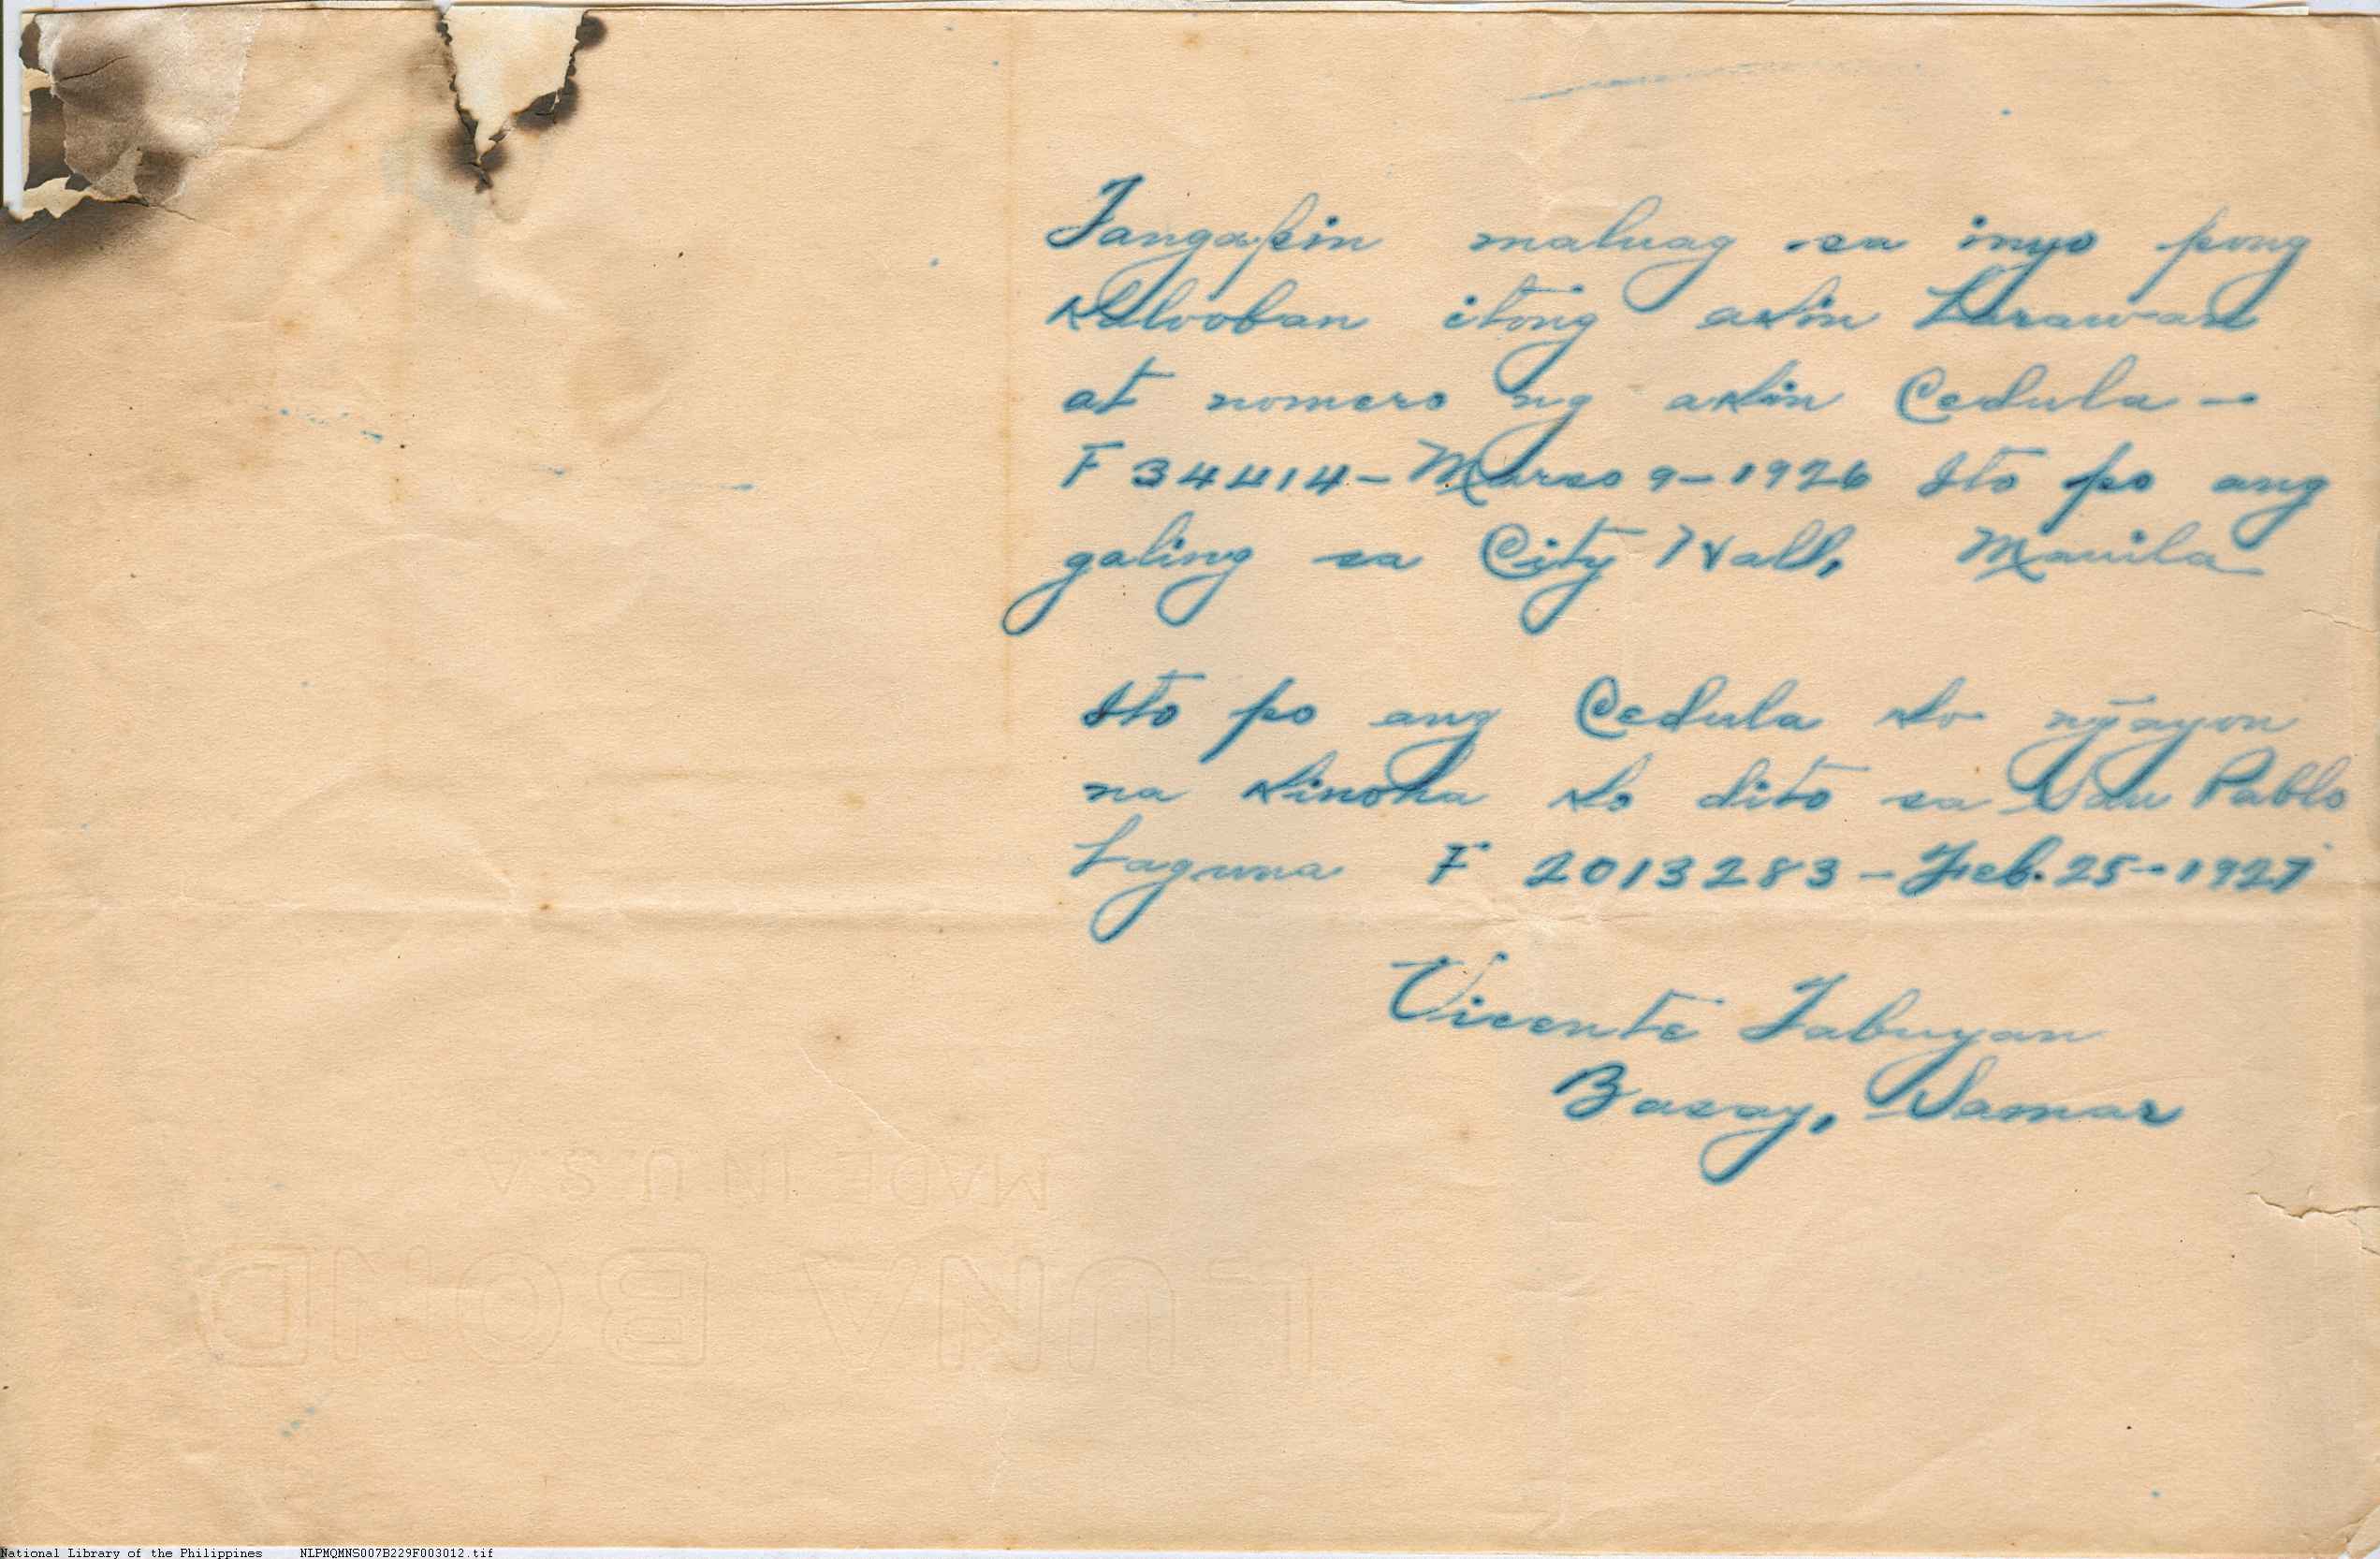 Tangapin maluag sa inyo pong
Kalooban itong akin Larawan
at nomero ng akin Cedula—
F 34414—Marso 9—1926 Ito po ang
galing sa City Hall, Manila
Ito po ang Cedula ko ng̃ayon
na kinoha ko dito sa San Pablo
Laguna F 2013283—Feb. 25—1927
Vicente Tabuyan
Basay, Samar
MADE IN U.S.A.
LUNA BOND
National Library of the Philippines NLPMQMNS007B229F003012.tif